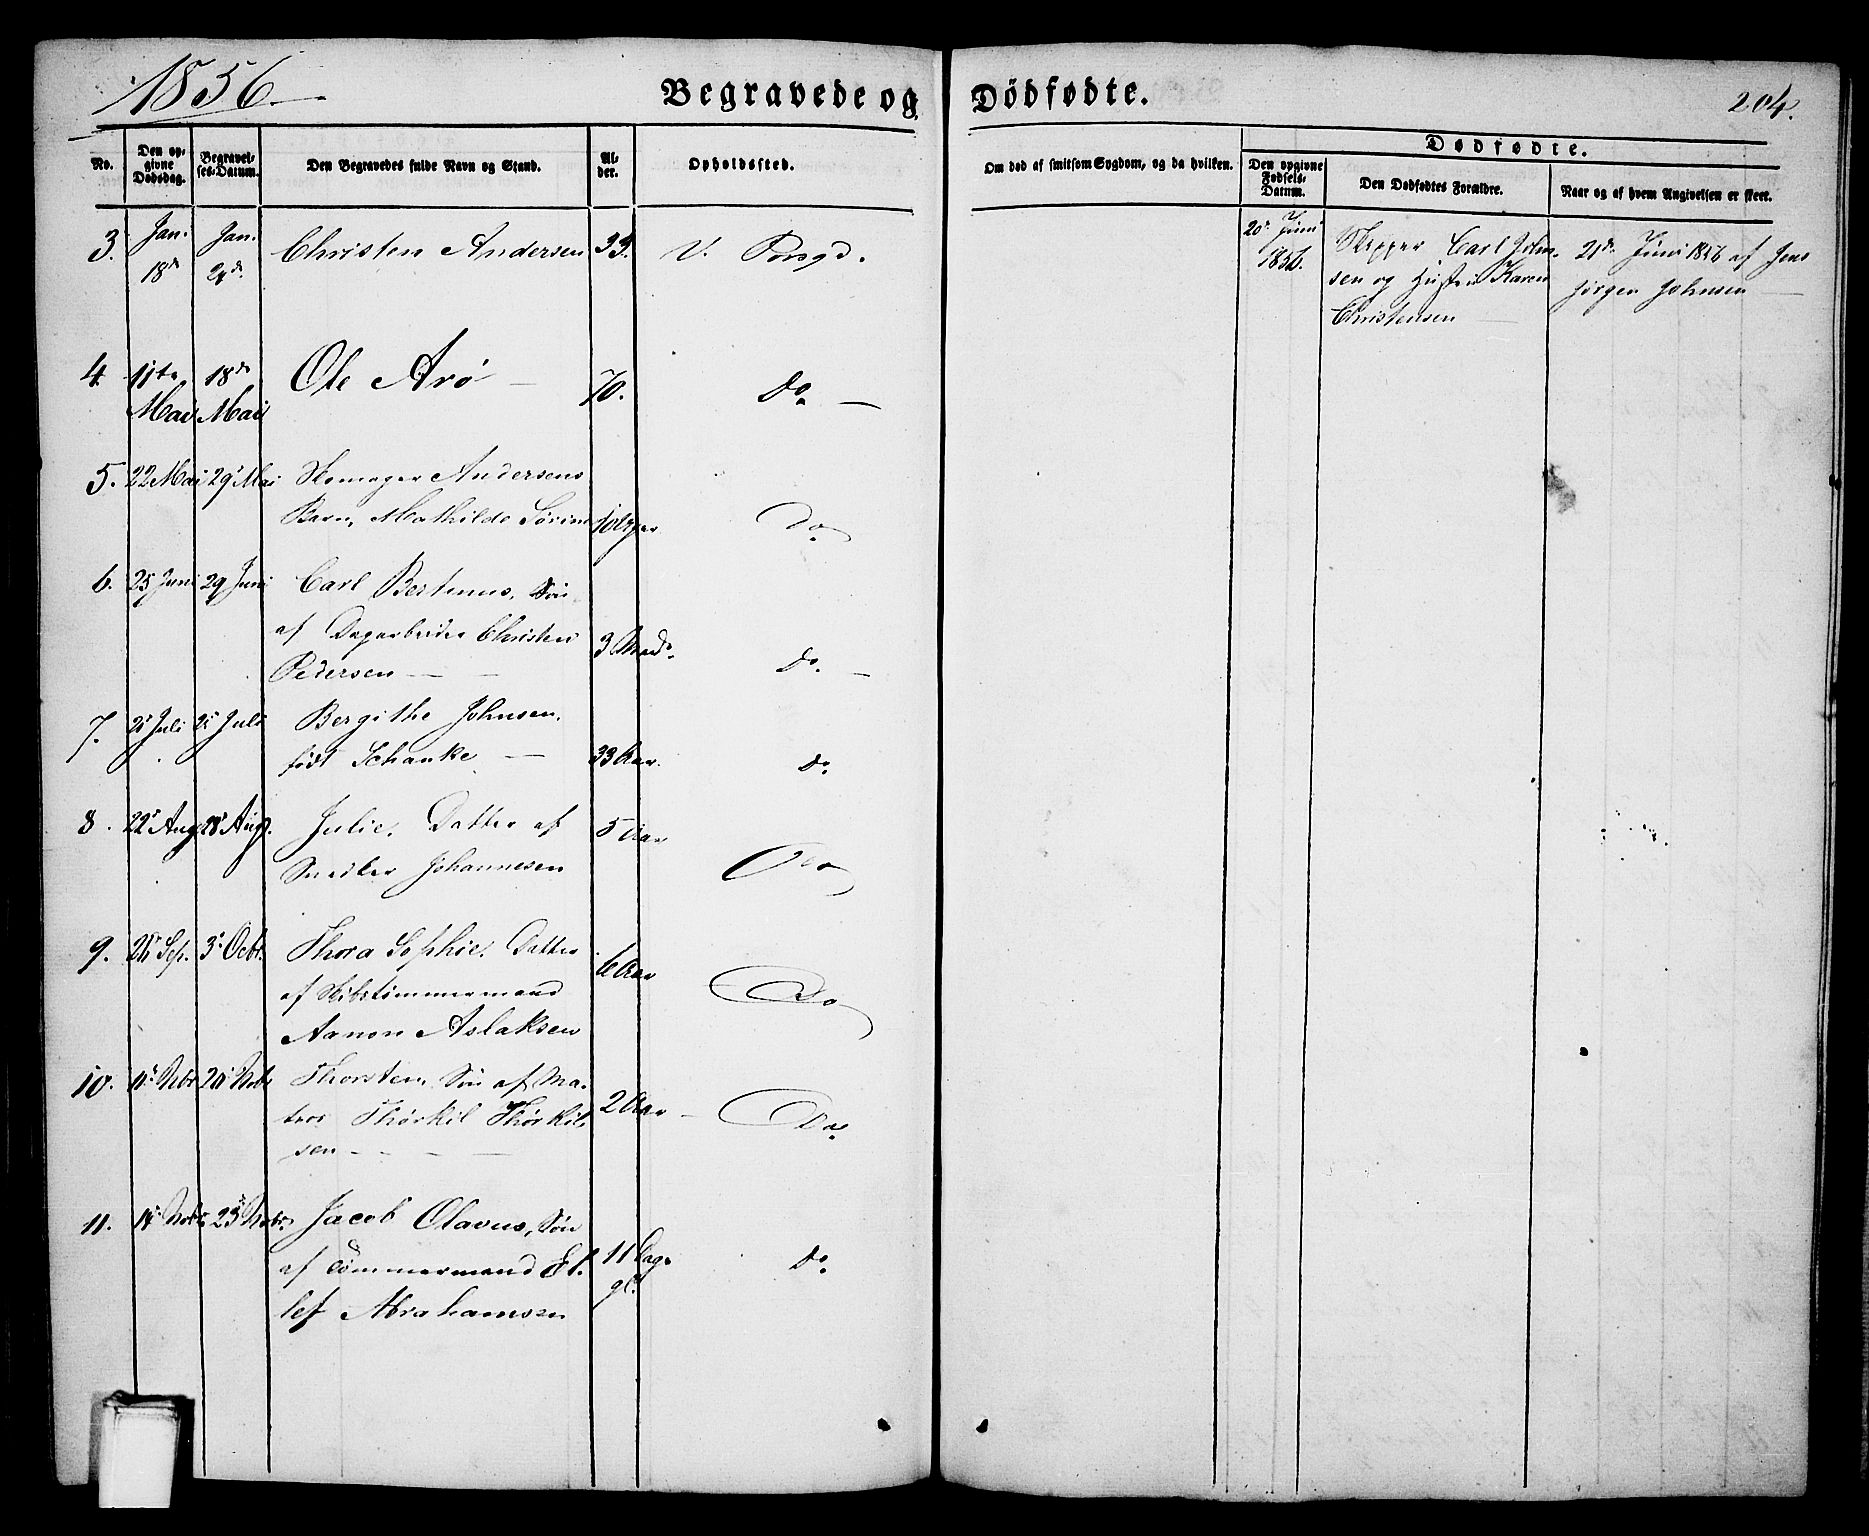 1856
Begravede og
Dødfødte.
204.
No.
Den op-
givne
Dødsdag.
Begravel-
ses-Datum.
Den Begravedes fulde Navn og Stand.
Al-
der.
Opholdssted.
Om død af smitsom Sygdom, og da hvilken.
Dødfødte.
Den opgivne
Fødsels-
Datum.
Den Dødfødtes Forældre.
Naar og af hvem Angivelsen er skeet.
3. Jan. Jan. Christen Andersen 33. V.
18de
20de Juni
1856.
Skipper Carl John-
sen og Hustru Karen
Christensen
21de Juni 1856 af Jens
Jørgen Johnsen
4. 11te 18de Ole Arø 70. Do.
Mai Mai
5. 22 Mai 29 Mai Skomager Andersens
Barn, Mathilde Sørine Do.
6. 25 Juni 29 Juni Carl Bertinus, Søn
af Dagarbeider Christen 3 Do.
Pedersen
7. Juli Juli Bergithe Johnsen,
født Schanke 33 Aar. Do.
8. 22 Aug 28 Aug. Julie, Datter af 5 Aar
Snedker Johannesen Do
9. Sep. 3 Octbr. Thora Sophie, Datter 6 Aar
af Skibstømmermand Do
Aanon Aslaksen
10. Novbr Novbr Thorsten, Søn af Ma-
tros Thorkil Thorkil- 2 Aar Do.
sen
11. 14 Novbr 23 Novbr. Jacob Olavus, Søn
af Tømmermand El- 11 Dage Do.
lef Abrahamsen gl.